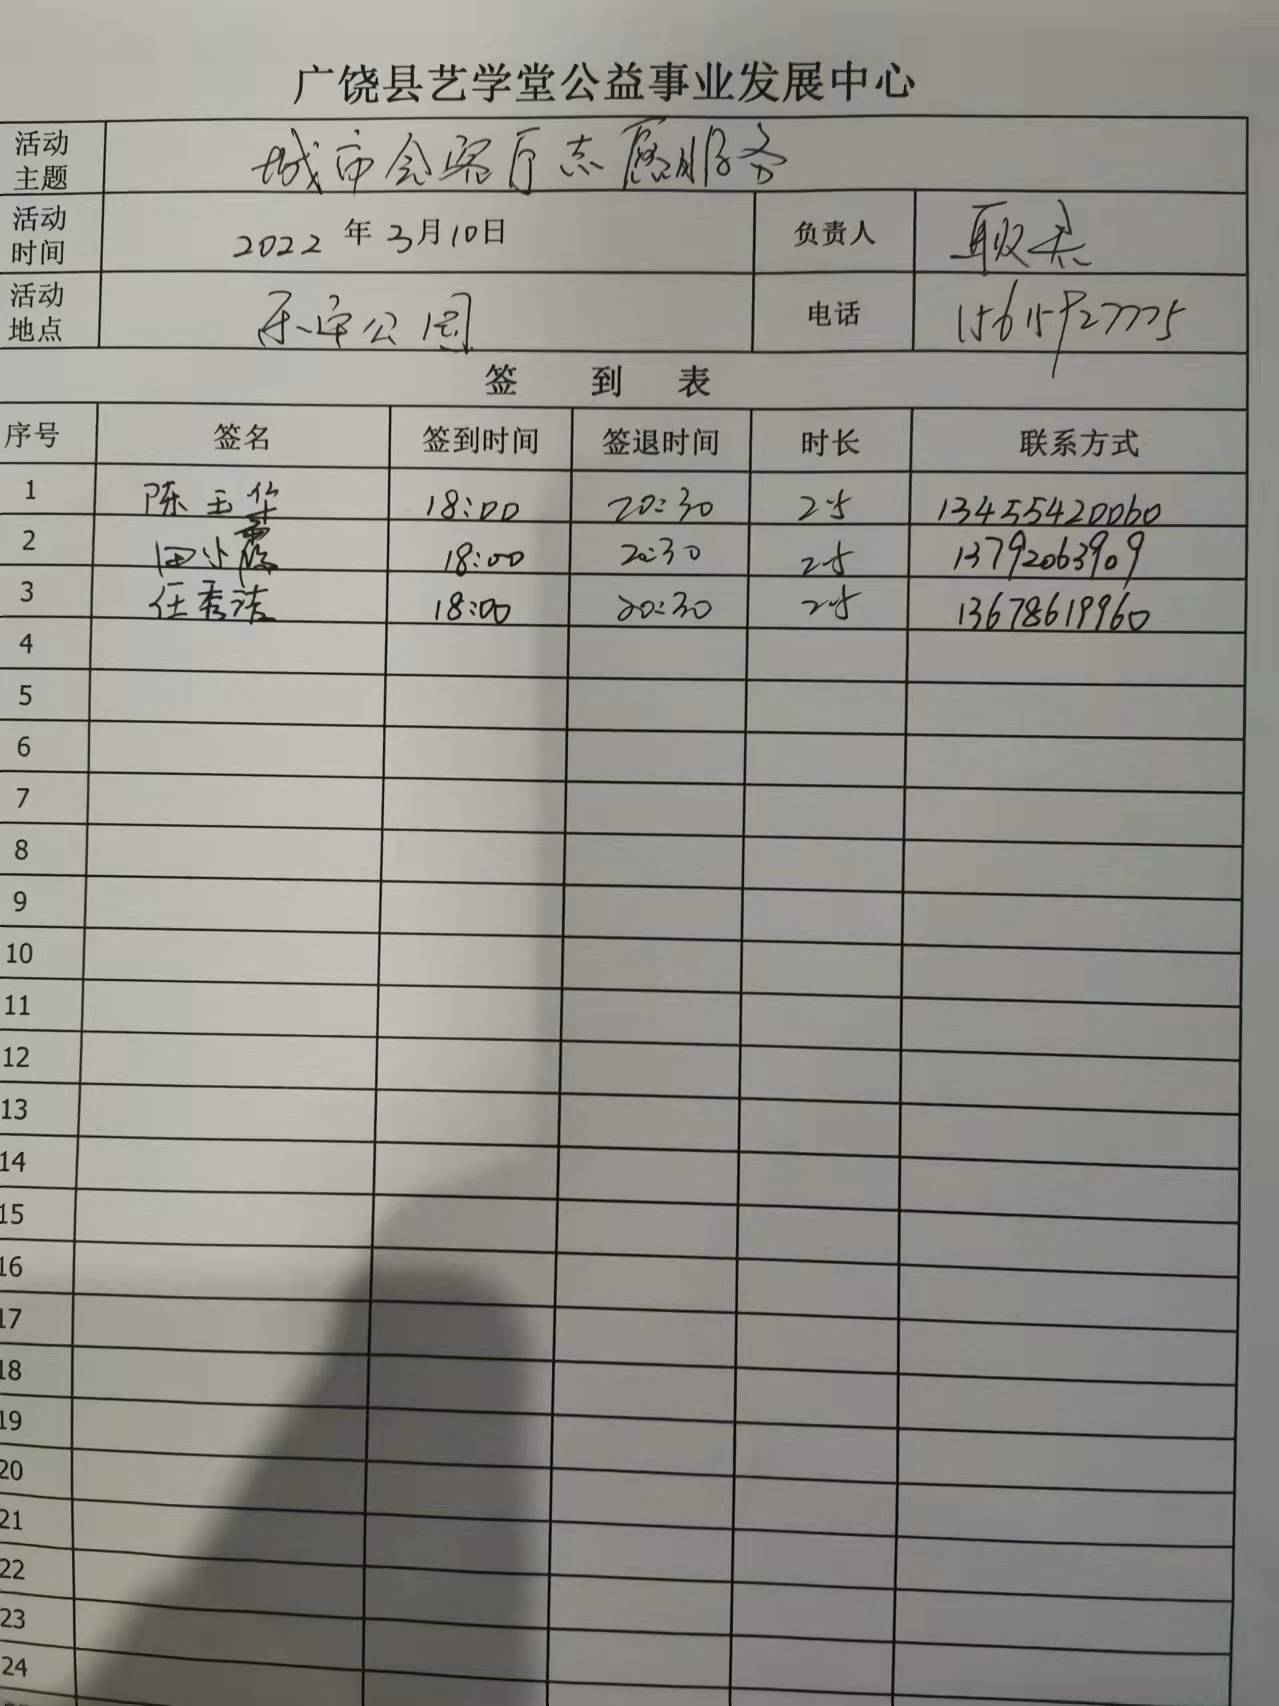 广饶县艺学堂公益事业发展中心
活动主题 城市会客厅志愿服务
活动时间 2022年3月10日 负责人
活动地点 乐安公园 电话 15615927775
签到表
序号 签名 签到时间 签退时间 时长 联系方式
1 陈玉华 18:00 20:30 2.5 13455420060
2 田小霞 18:00 20:30 2.5 13792063909
3 任秀洁 18:00 20:30 2.5 13678619960
4
5
6
7
8
9
10
11
12
13
14
15
16
17
18
19
20
21
22
23
24